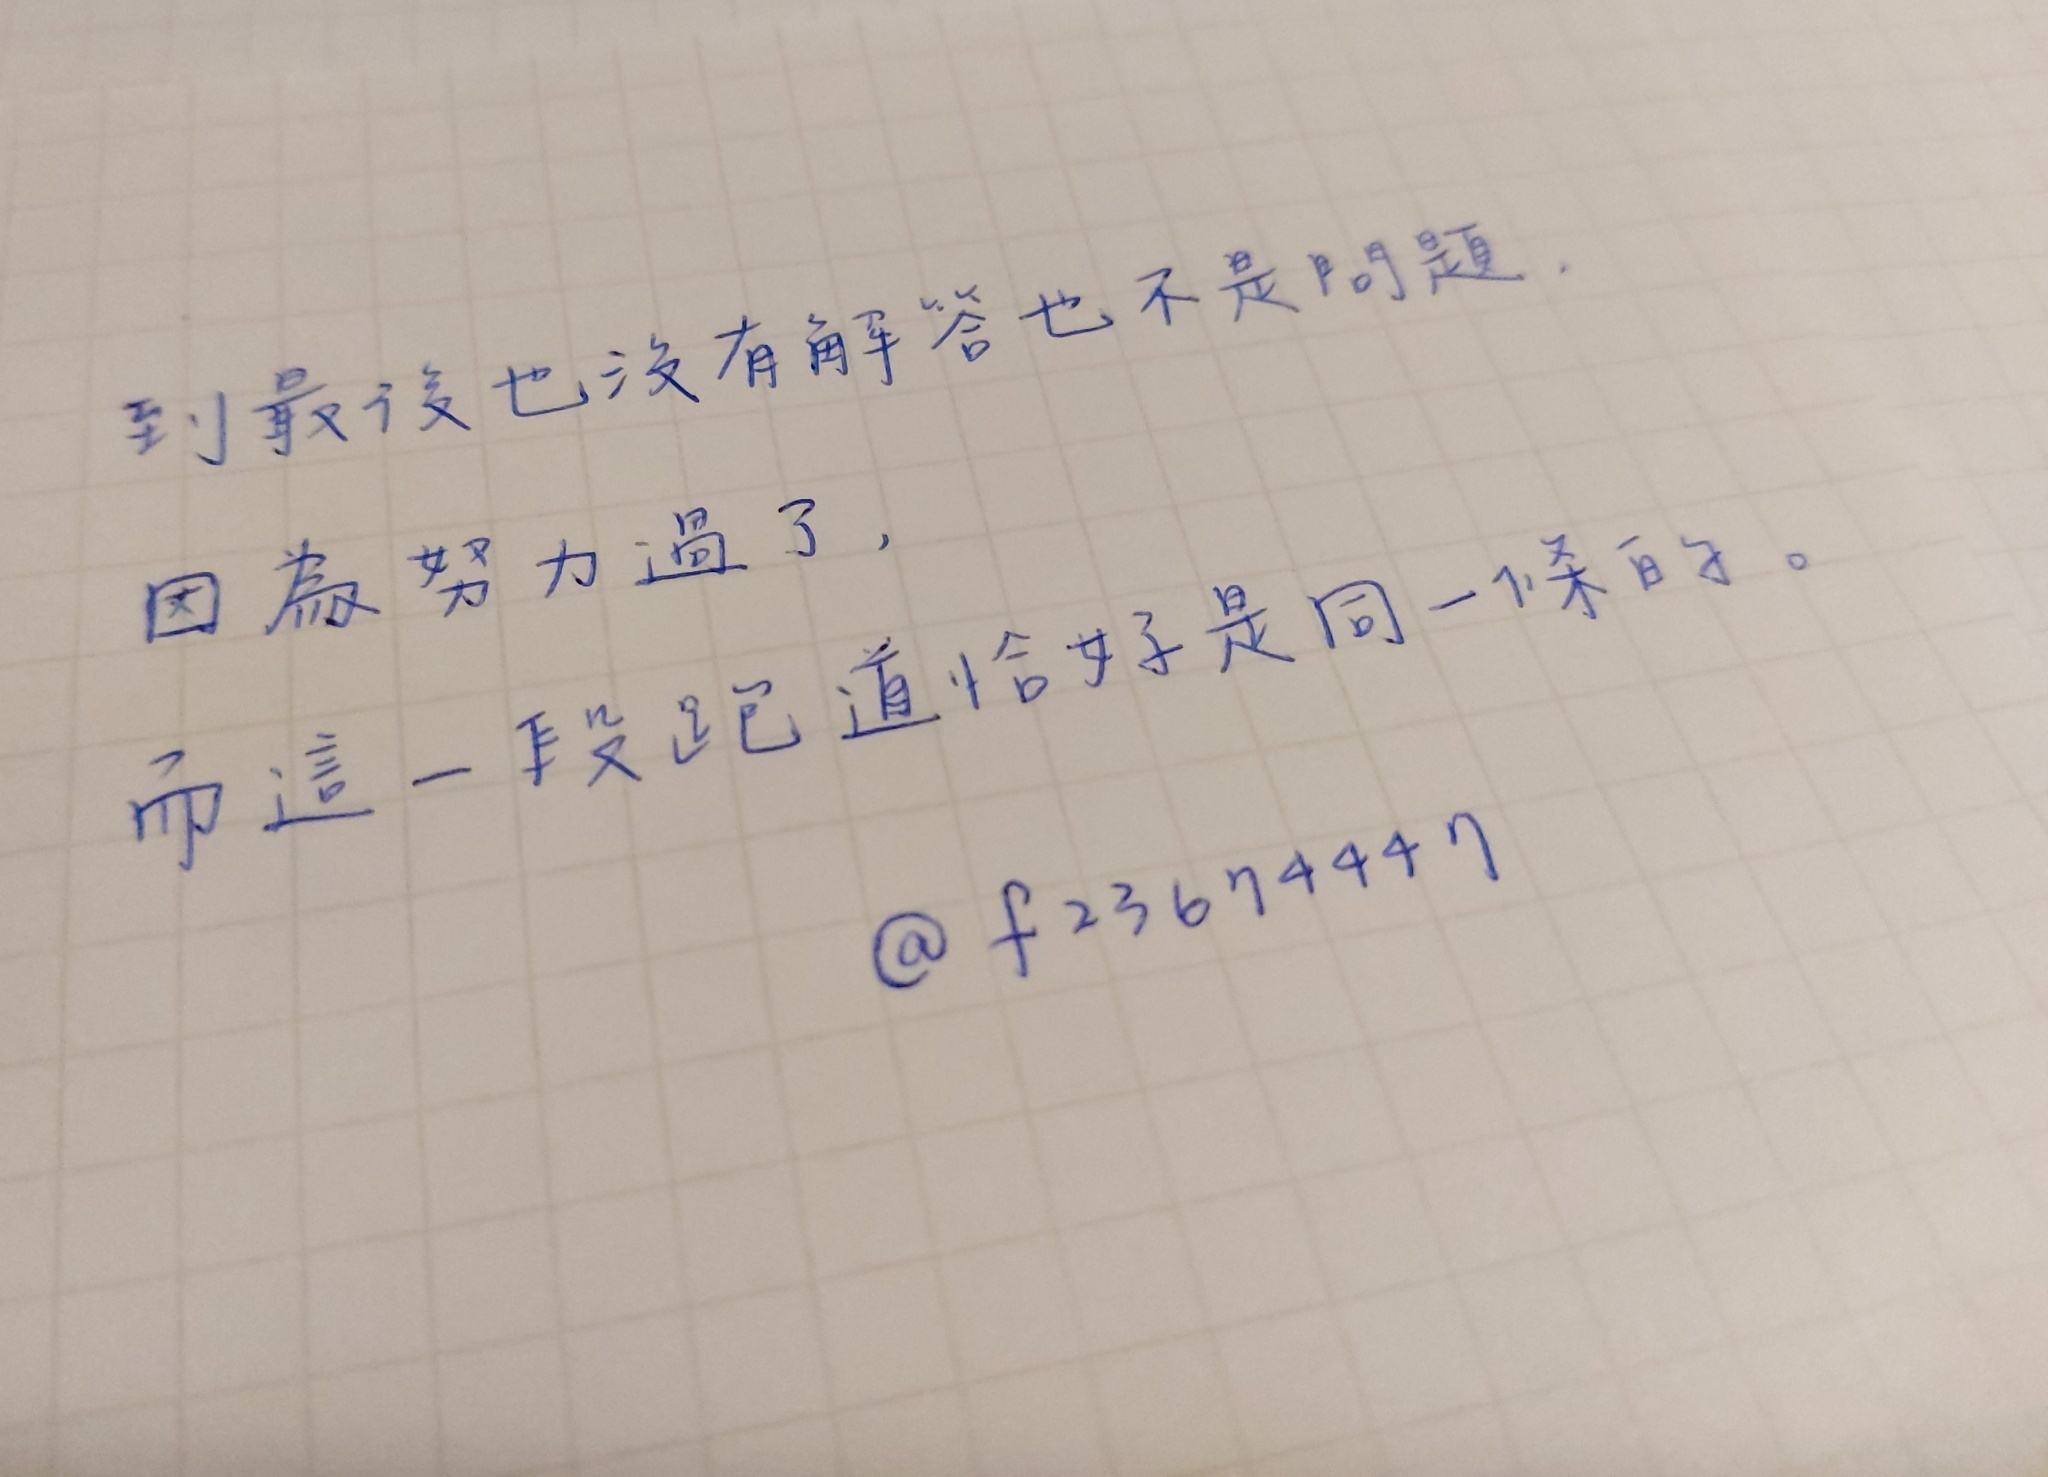 到最後也沒有解答也不是問題.
因為努力過了,
而這一段跑道恰好是同一條的。
@f23674447